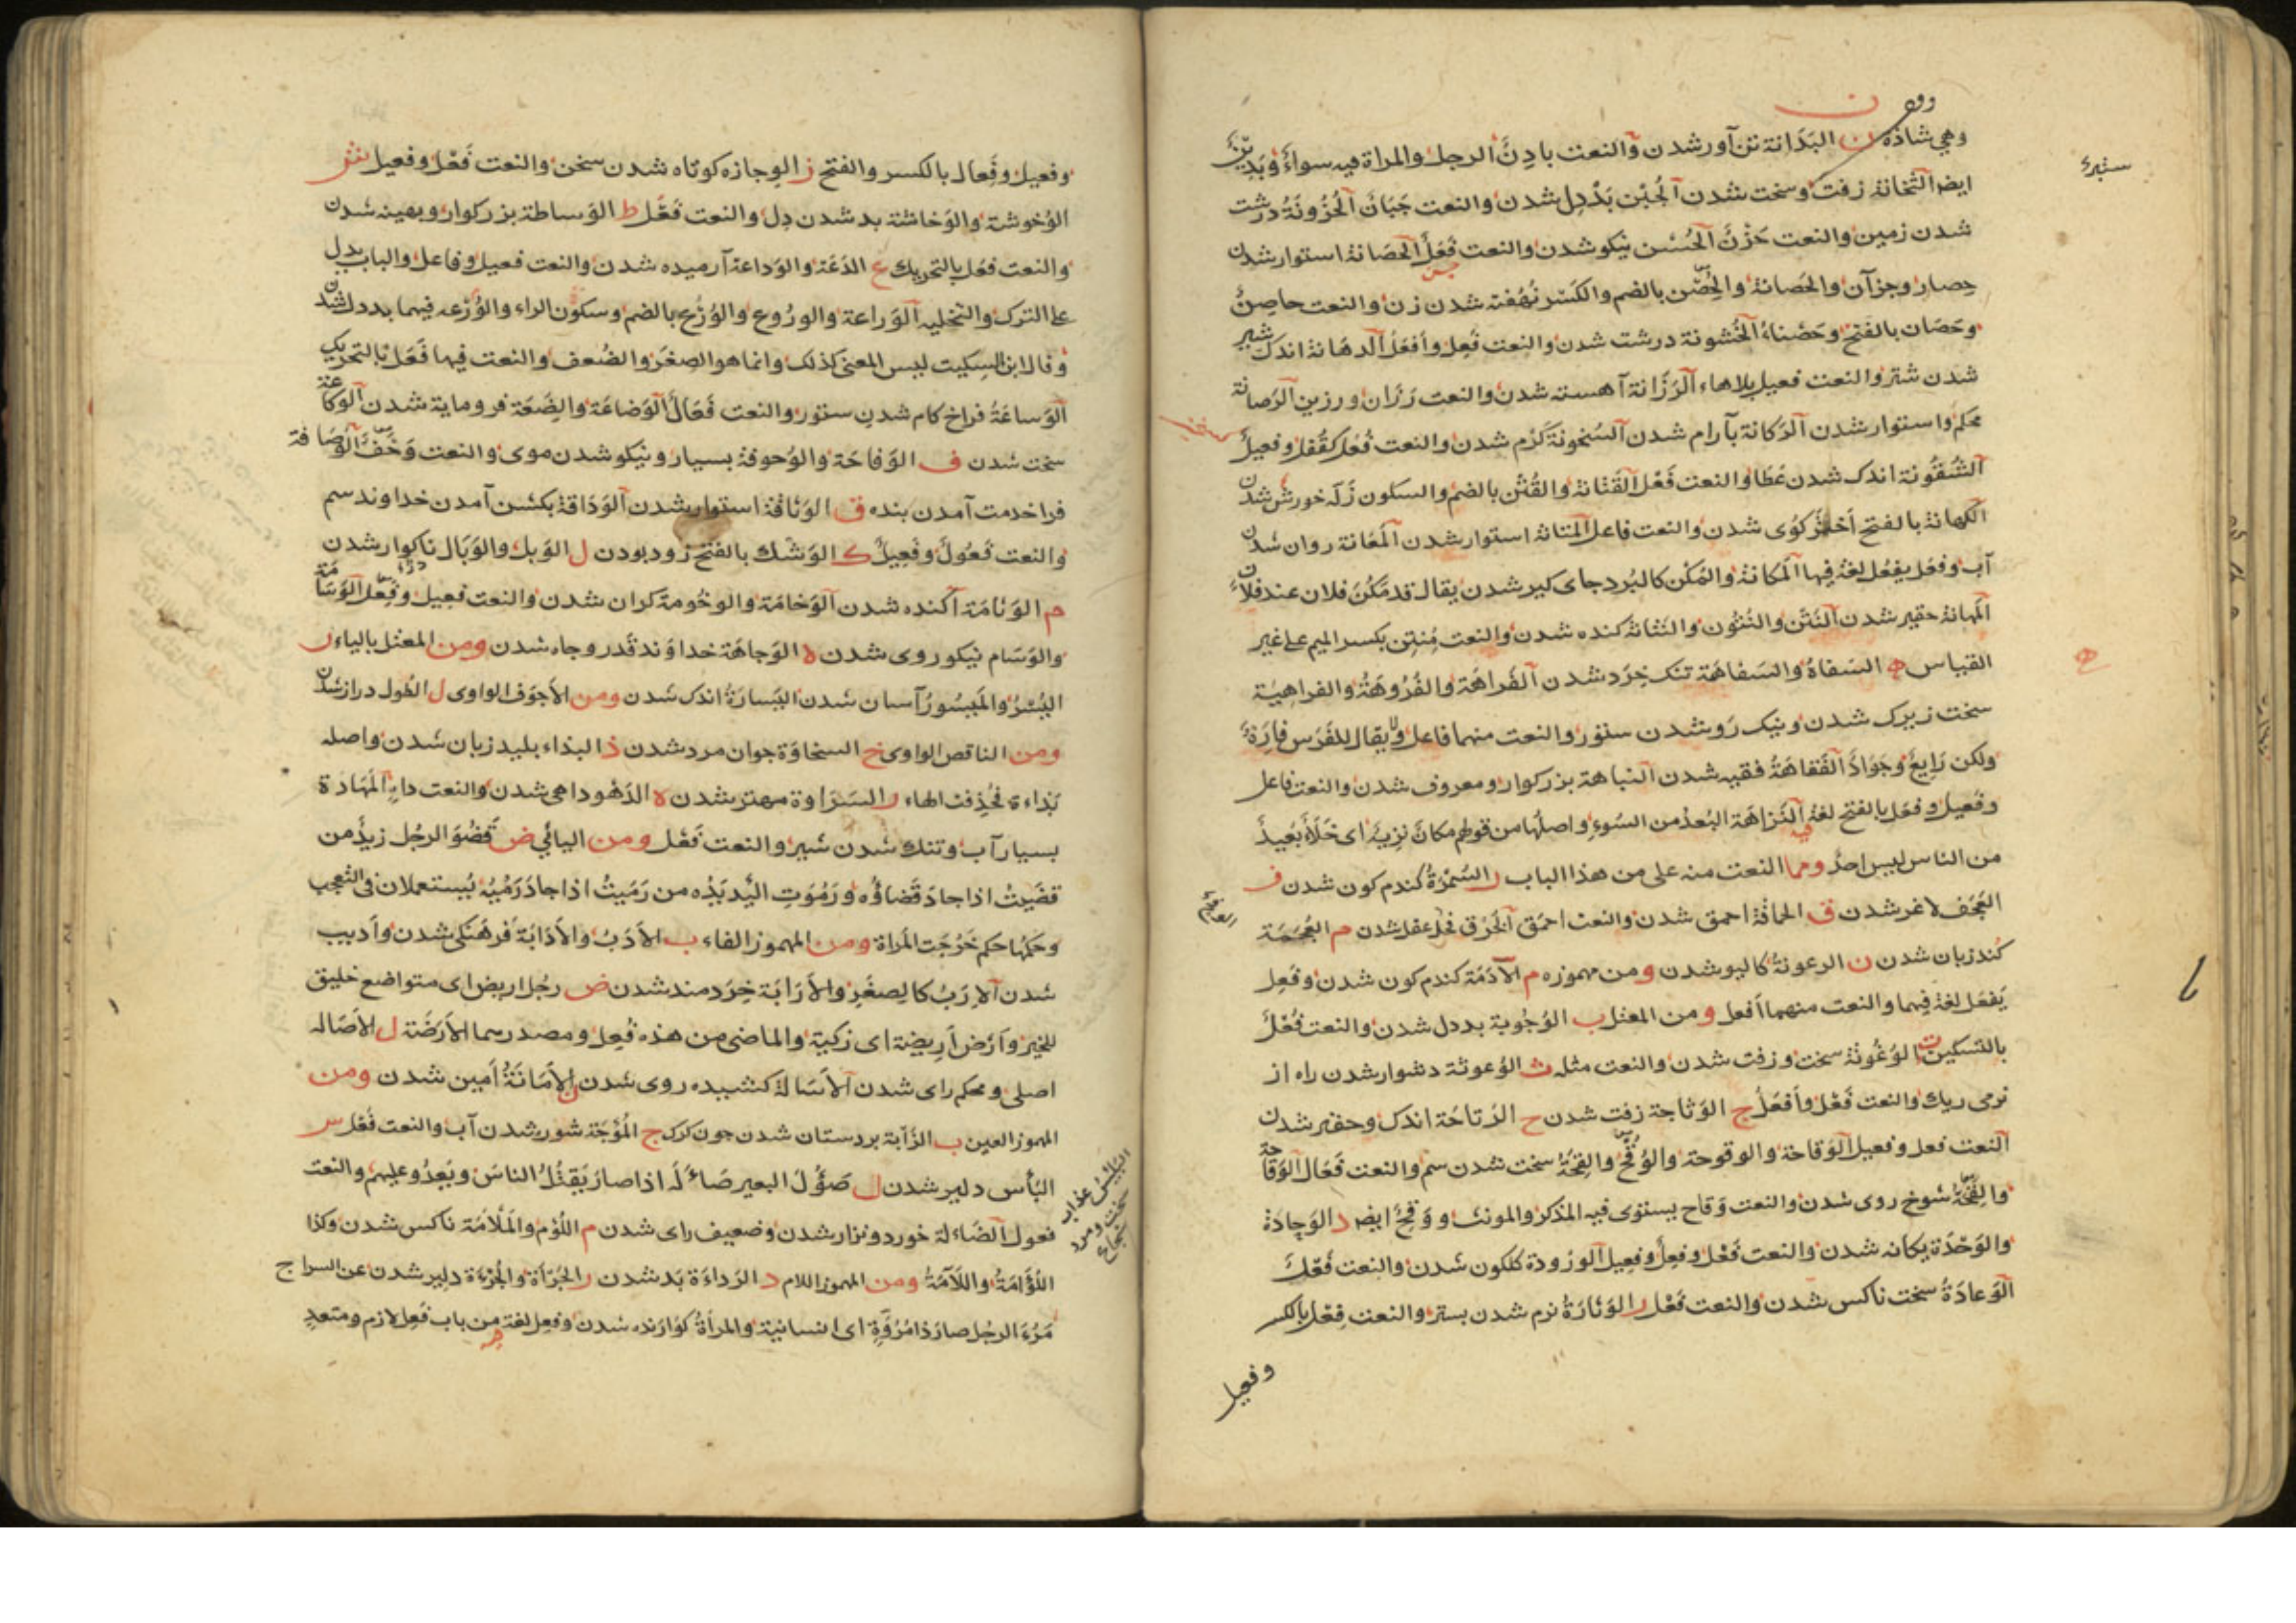 وهي شاذة ن البَدَانة تن آور شدن والنعت بادِنٌ الرجل والمراة فيه سواءٌ وبَدِينٌ
ستبرئ
ايضا الثخانة زفت وسخت شدن الجُبْن بَدْدِل شدن والنعت جَبَانٌ الحُزُونَةُ درشت
شدن زمين والنعت حَزْنٌ الحُسْن نيكو شدن والنعت فَعَلٌ الحَصَانة استوار شدن
حصار وجز آن والحَصانة والحُصْن بالضم والكَسْر نهُفته شدن زن والنعت حاصِنٌ
وحَصَان بالفتح وحَصْناءُ الخُشونة درشت شدن والنعت فَعِل وأفعَلُ الدهَانة اندك شير
شدن شتر والنعت فعيل بلاهاء الرَزَانة آهسته شدن والنعت رَزَان ورزين الرَصانة
محكم واستوار شدن الرَكانة بآرام شدن السُخونة كَرْم شدن والنعت فُعْل كقُفل وفعيلٌ
الشُقُونة اندك شدن عَطا والنعت فَعْل القَتانة والقُتْن بالضم والسكون زَلّه خورش شدن
الكهانة بالفتح أختر كوى شدن والنعت فاعل المَتانة استوار شدن المَعَانة روان شدن
آب وفعَل يفعُل لغة فيها المكانة والمَكْن كالبُرد جاى كير شدن يقال قد مَكُنَ فلان عند فلان
المَهانة حقير شدن النَتْن والنُتُون والنَتانة كنده شدن والنعت مُنتِن بكسر الميم على غير
القياس ه السَفاهُ والسَفاهَة تنك خِرَد شدن الفَراهَة والفُرُوهَةُ والفراهِيَة
سخت زيرك شدن ونيك رَو شدن ستور والنعت منهما فاعل ولا يقال للفَرَس فارِهٌ
ولكن رَايعٌ وجَوَادٌ الفَقاهَةُ فقيه شدن النباهة بزركوار ومعروف شدن والنعت فاعل
وفعيل وفعَل بالفتح لغة النَزاهَة البُعدُ من السُوءِ واصلُها من قولهم مكانٌ نزِيهٌ اى خَلاءٌ بَعِيدٌ
من الناس ليس فيه احدٌ ومما النعت منه على من هذا الباب ر السُمْرَةُ كندم كون شدن ف
العَجَف لاغر شدن ق الحماقة احمق شدن والنعت احمَق الخُرْق كم عقل شدن م العُجمَة
كُند زبان شدن ن الرعونةُ كاليو شدن ومن مهموزه م الأُدْمَة كندم كون شدن وفَعِل
يَفعَل لغة فيهما والنعت منهما أفعل ومن المعتل ب الوُجُوبة بددل شدن والنعت فَعْلٌ
بالتسكين ث الوُعُوثة سخت وزفت شدن والنعت مثله ث الوُعوثة دشوار شدن راه از
نرمى ريك والنعت فَعْل وأفعَلُ ج الوَثاجة زفت شدن ح الوَتاحَة اندك وحقير شدن
النعت فعل وفعيل الوَقاحة والوقوحة والوُقْحُ والقِحَةُ سخت شدن سم والنعت فَعَال الوَقاحة
والقِحَةُ شوخ روى شدن والنعت وَقاح يستوى فيه المذكر والمونث ووَقِحٌ ايضا د الوَحادَة
والوَحْدَة يكانه شدن والنعت فَعْل وفعِلٌ وفعِيل الورُودة كلكون شدن والنعت فَعْلٌ
الوَعادَةُ سخت ناكس شدن والنعت فَعْل ر الوَثارَةُ نرم شدن بستر والنعت فِعْل بالكسر
وفعيل
وفعيل وفَِعال بالكسر والفتح ز الوجازه كوتاه شدن سخن والنعت فَعْل وفعيل ش
الوُخوشة والوَخاشة بد شدن دِل والنعت فَعْل ط الوَساطة بزركوار وبهينه شدن
والنعت فعَل بالتحريك ع الدَعَة والوَداعة آرميده شدن والنعت فعيل وفاعل والباب يدل
على الترك والتخليه الوَراعة والورُوع والوُرْع بالضم وسكون الراء والوُرْعه فيهما بددل شدن
وقال ابن السكيت ليس المعنى كذلك وانما هو الصِغَر والضُعف والنعت فيها فَعَل بالتحريك
الوَساعَةُ فراخ كام شدن ستور والنعت فَعَالٌ الوَضاعَة والضِعَة فرومايه شدن الوَكاعة
سخت شدن ف الوَفاحَة والوُحوفة بسيار ونيكو شدن موى والنعت وَحْفٌ الوَصَافة
فرا خدمت آمدن بنده ق الوَثاقة استوار شدن الوَدَاقة بكشن آمدن خداوند سم
والنعت فَعُولٌ وفَعِيلٌ ك الوَشْك بالفتح زود بودن ل الوَبل والوَبَال ناكوار شدن
م الوَثامَة آكنده شدن الوَخامَة والوخُومة كران شدن والنعت فعيل وفَعِل الوَسَامَة
والوَسَام نيكو روى شدن ه الوَجاهَة خداوَند قَدر وجاه شدن ومن المعتل بالياء ر
اليُسْرُ والمَيسُورُ آسان شدن اليَسارَةُ اندك شدن ومن الأجوَف الواوى ل الطُول دراز شدن
ومن الناقص الواوى خ السخاوَة جوان مرد شدن ذ البذاء بليد زبان شدن واصله
بَذاءة فحُذِفت الهاء ر السَرَاوة مهتر شدن ه الدَهْو داهى شدن والنعت داهٍ المَهَادة
بسيار آب وتنك شدن شير والنعت فَعْل ومن اليائى ض قَضُوَ الرجُل زيدٌ من
قضَيتُ اذا جادَ قَضاؤُه ورَمُوَتِ اليَد يَدُه من رَمَيتُ اذا جادَ رَمْيُهُ يُستعملان فى التعجب
وحكمُها حكم خَرُجَت المَراة ومن المهموز الفاء ب الأدَبُ والأدَابَة فَرهَنكى شدن وأديب
شدن الإرَبُ كالصِغَرِ والأرَابَة خِرَدمند شدن ض رجُل اريض اى متواضع خليق
للخير وأرض أريضة اى زكية والماضى من هذه فَعِل ومصدرهما الأرَضَة ل الأصَالة
اصلى ومحكم راى شدن الأسَالة كشيده روى شدن ن الأمَانَةُ أمين شدن ومن
المهموز العين ب الزَأبة بردستان شدن جون كرك ج المُؤجَة شور شدن آب والنعت فَعْل س
البأس دلير شدن ل صَؤُلَ البعير صَاءلَةً اذا صار يَقتُلُ الناسَ ويَعدُو عليهم والنعت
البائس عذاب سخت ومرد شجاع
فعول الضَاءلة خورد ونزار شدن وضعيف راى شدن م اللُؤم والمَلأمَة ناكس شدن وكذا
اللُؤامَةُ واللَآمَةُ ومن المهموز اللام د الرَداءَة بَد شدن ر الجُرأة والجُرْءَة دلِير شدن عن السراج
مَرُءَ الرجُل صار ذا مُرُوَّةٍ اى انسانية والمرأةُ كوارنده شدن وفعِل لغة فيه من باب فَعِل لازم ومتعدٍ